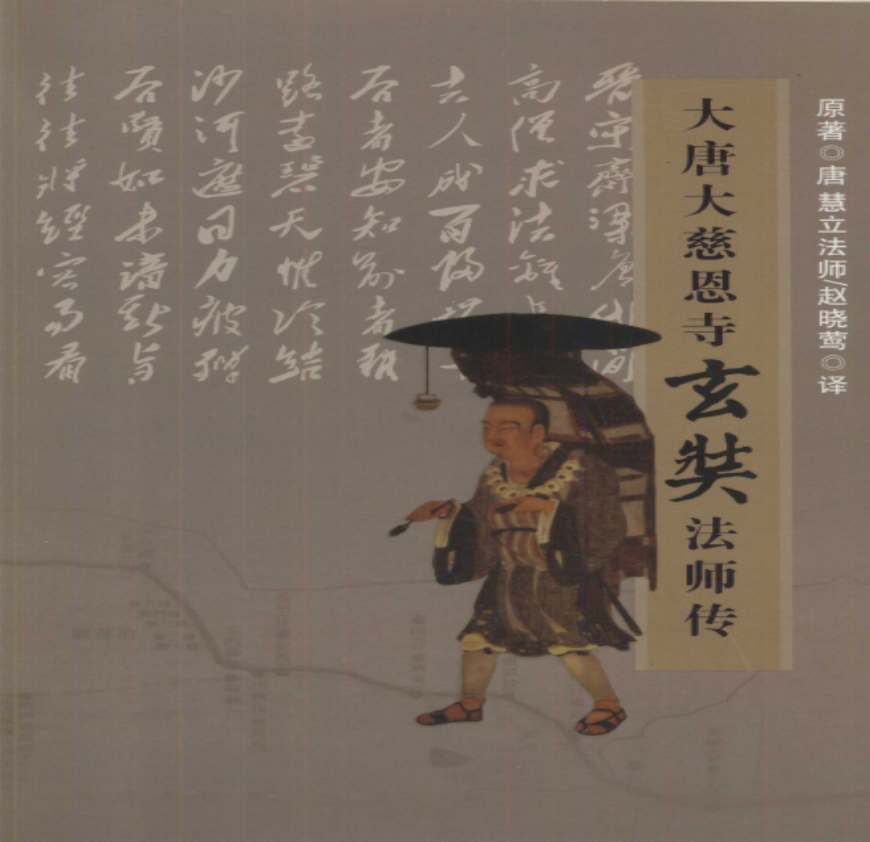 原著◎唐 慧立法师/赵晓莺◎译
大唐大慈恩寺玄奘法师传
晋宋齊梁唐代间
高僧求法離長
去人成百歸
后者安知前者難
路遠碧天惟冷结
沙河遮日力疲殫
后賢如未諳斯旨
往往將經容易看